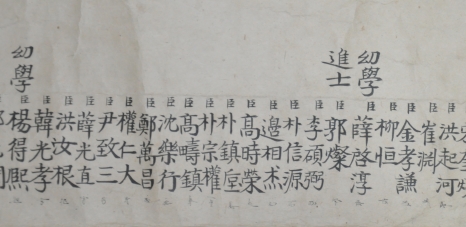 幼學
臣洪起河
臣崔
臣金孝謙
臣柳恒
臣薛啓淳
進士
臣郭燦
臣李碩弼
臣朴信源
臣邊相杰
臣高時榮
臣朴鎮垕
臣朴宗權
臣高疇鎮
臣沈樂行
臣鄭萬昌
臣權仁大
臣尹致三
臣薛光直
臣洪汝根
臣韓光孝
幼學
臣楊得熙